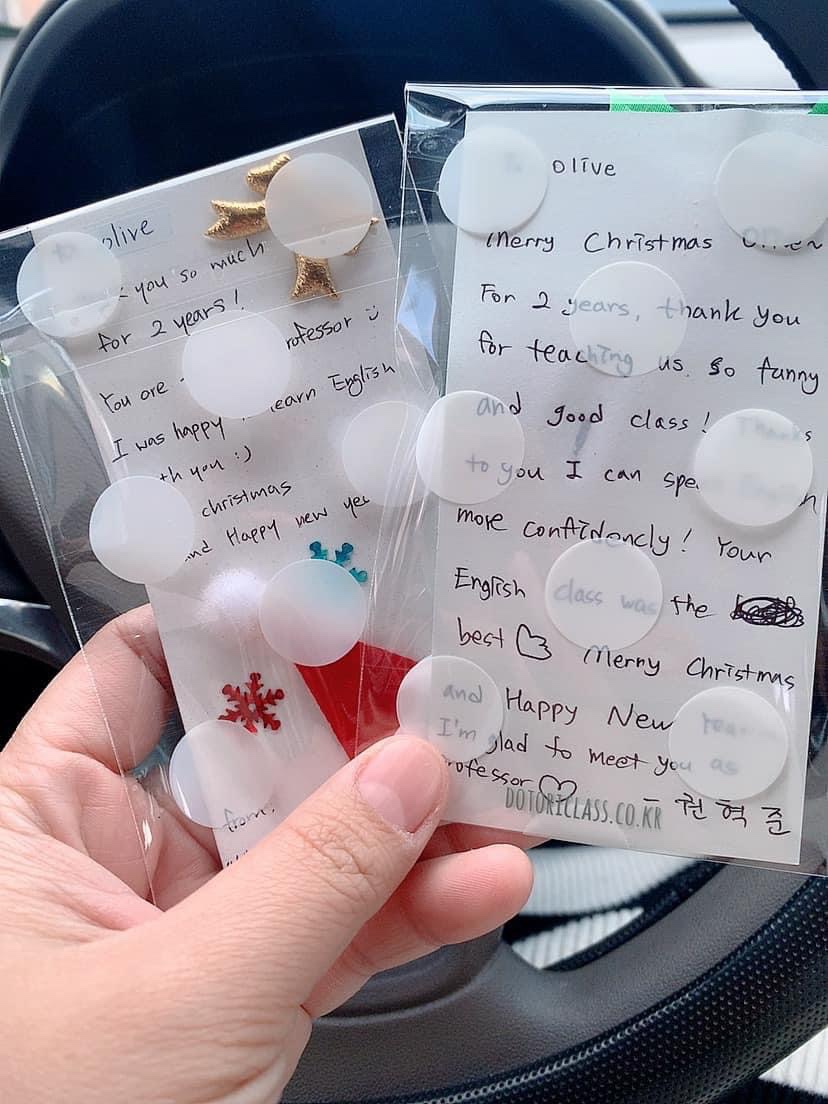 olive
you so much
for 2 years!
You are rofessor :)
I was happy learn English
th you :)
christmas
and Happy new ye
from,
To olive
Merry Christmas
For 2 years, thank you
for teaching us. so funny
and good class! Thanks
to you I can spe English
more confidencly! Your
English class was the
best ♡ Merry Christmas
and Happy New Year
I'm glad to meet you as
rofessor ♡
- 권혁준
DOTORICLASS.CO.KR